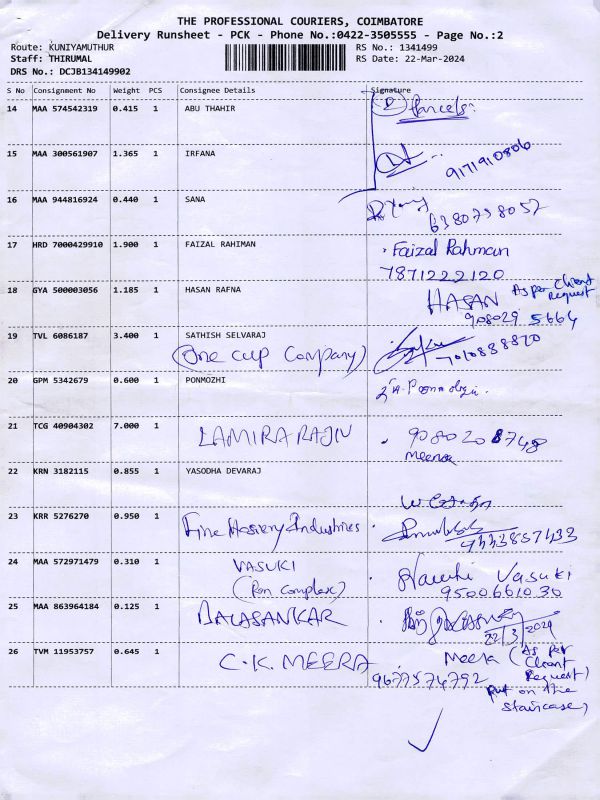 THE PROFESSIONAL COURIERS, COIMBATORE
Delivery Runsheet - PCK - Phone No.:0422-3505555 - Page No.:2
Route: KUNIYAMUTHUR
RS No.: 1341499
Staff: THIRUMAL
RS Date: 22-Mar-2024
DRS No.: DCJB134149902
S No Consignment No Weight PCS Consignee Details Signature
14 MAA 574542319 0.415 1 ABU THAHIR
Parcels:
15 MAA 300561907 1.365 1 IRFANA
9171910806
16 MAA 944816924 0.440 1 SANA
6380758057
17 HRD 7000429910 1.900 1 FAIZAL RAHIMAN Faizal Rahman
7871222120
18 GYA 500003056 1.185 1 HASAN RAFNA HASAN As per Client
Request
908029 5664
19 TVL 6086187 3.400 1 SATHISH SELVARAJ
(One cup Company) 7010888820
20 GPM 5342679 0.600 1 PONMOZHI
21 TCG 40904302 7.000 1 LAMIRA RAJIV 9080208748
Meena
22 KRN 3182115 0.855 1 YASODHA DEVARAJ
23 KRR 5276270 0.950 1 Fine Hosiery Industries
9333857433
24 MAA 572971479 0.310 1 VASUKI Vasuki
(Ram Complex) 9500661030
25 MAA 863964184 0.125 1 BALASANKAR
22/3/2024
26 TVM 11953757 0.645 1 C.K. MEERA Meera (As per
Client
Request)
9677574792
put on the
staircase)